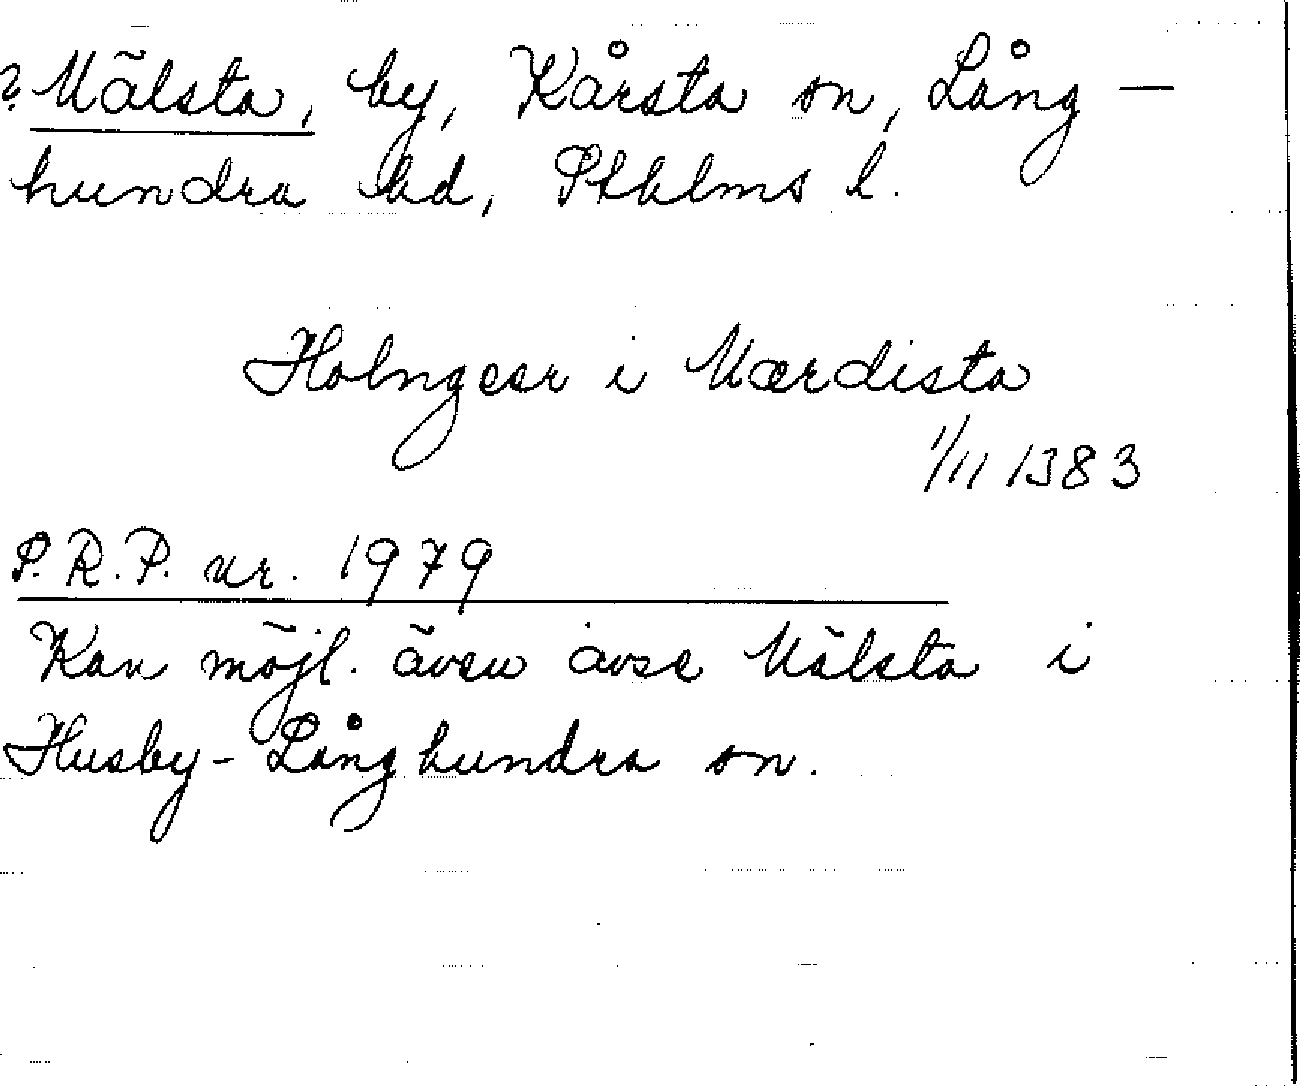 ? Mälsta, by, Kårsta sn, Lång-
hundra hd, Sthlms l.
Holngesr i Mærdista
1/11 1383
S.R.P. nr. 1979
Kan möjl. även avse Mälsta i
Husby-Långhundra sn.